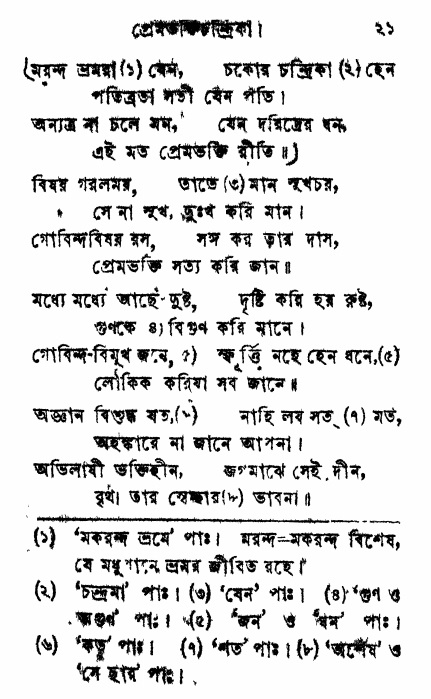 প্রেমভক্তিচন্দ্রিকা। ২১
(মরন্দ ভ্রমরা (১) যেন, চকোর চন্দ্রিকা (২) হেন
পতিব্রতা সতী যেন পতি।
অন্যত্র না চলে মন, যেন দরিদ্রের ধন,
এই মত প্রেমভক্তি রীতি॥)
বিষয় গরলময়, তাতে (৩) মান সুখচয়,
সে না সুখ, দুঃখ করি মান।
গোবিন্দবিষয় রস, সঙ্গ কর তার দাস,
প্রেমভক্তি সত্য করি জান॥
মধ্যে মধ্যে আছে দুষ্ট, দৃষ্টি করি হয় রুষ্ট,
গুণকে ৪) বিগুণ করি মানে।
গোবিন্দ-বিমুখ জনে, ৫) স্ফূর্ত্তি নহে হেন ধনে,(৫)
লৌকিক করিয়া সব জানে॥
অজ্ঞান বিশুদ্ধ যত,(৬) নাহি লয় সত্ (৭) মত,
অহঙ্কারে না জানে আপনা।
অভিলাষী ভক্তিহীন, জগমাঝে সেই দীন,
বৃথা তার স্বেচ্ছার(৮) ভাবনা॥
(১) 'মকরন্দ ভ্রমে' পাঃ। মরন্দ=মকরন্দ বিশেষ,
যে মধুপানে ভ্রমর জীবিত রহে।
(২) 'চন্দ্রমা' পাঃ। (৩) 'যেন' পাঃ। (৪) 'গুণ ও
অগুণ' পাঃ। (৫) 'জন' ও 'ধন' পাঃ।
(৬) পাঃ। (৭) 'শত' পাঃ। (৮) 'অশেষ' ও
'সে ছার' পাঃ।